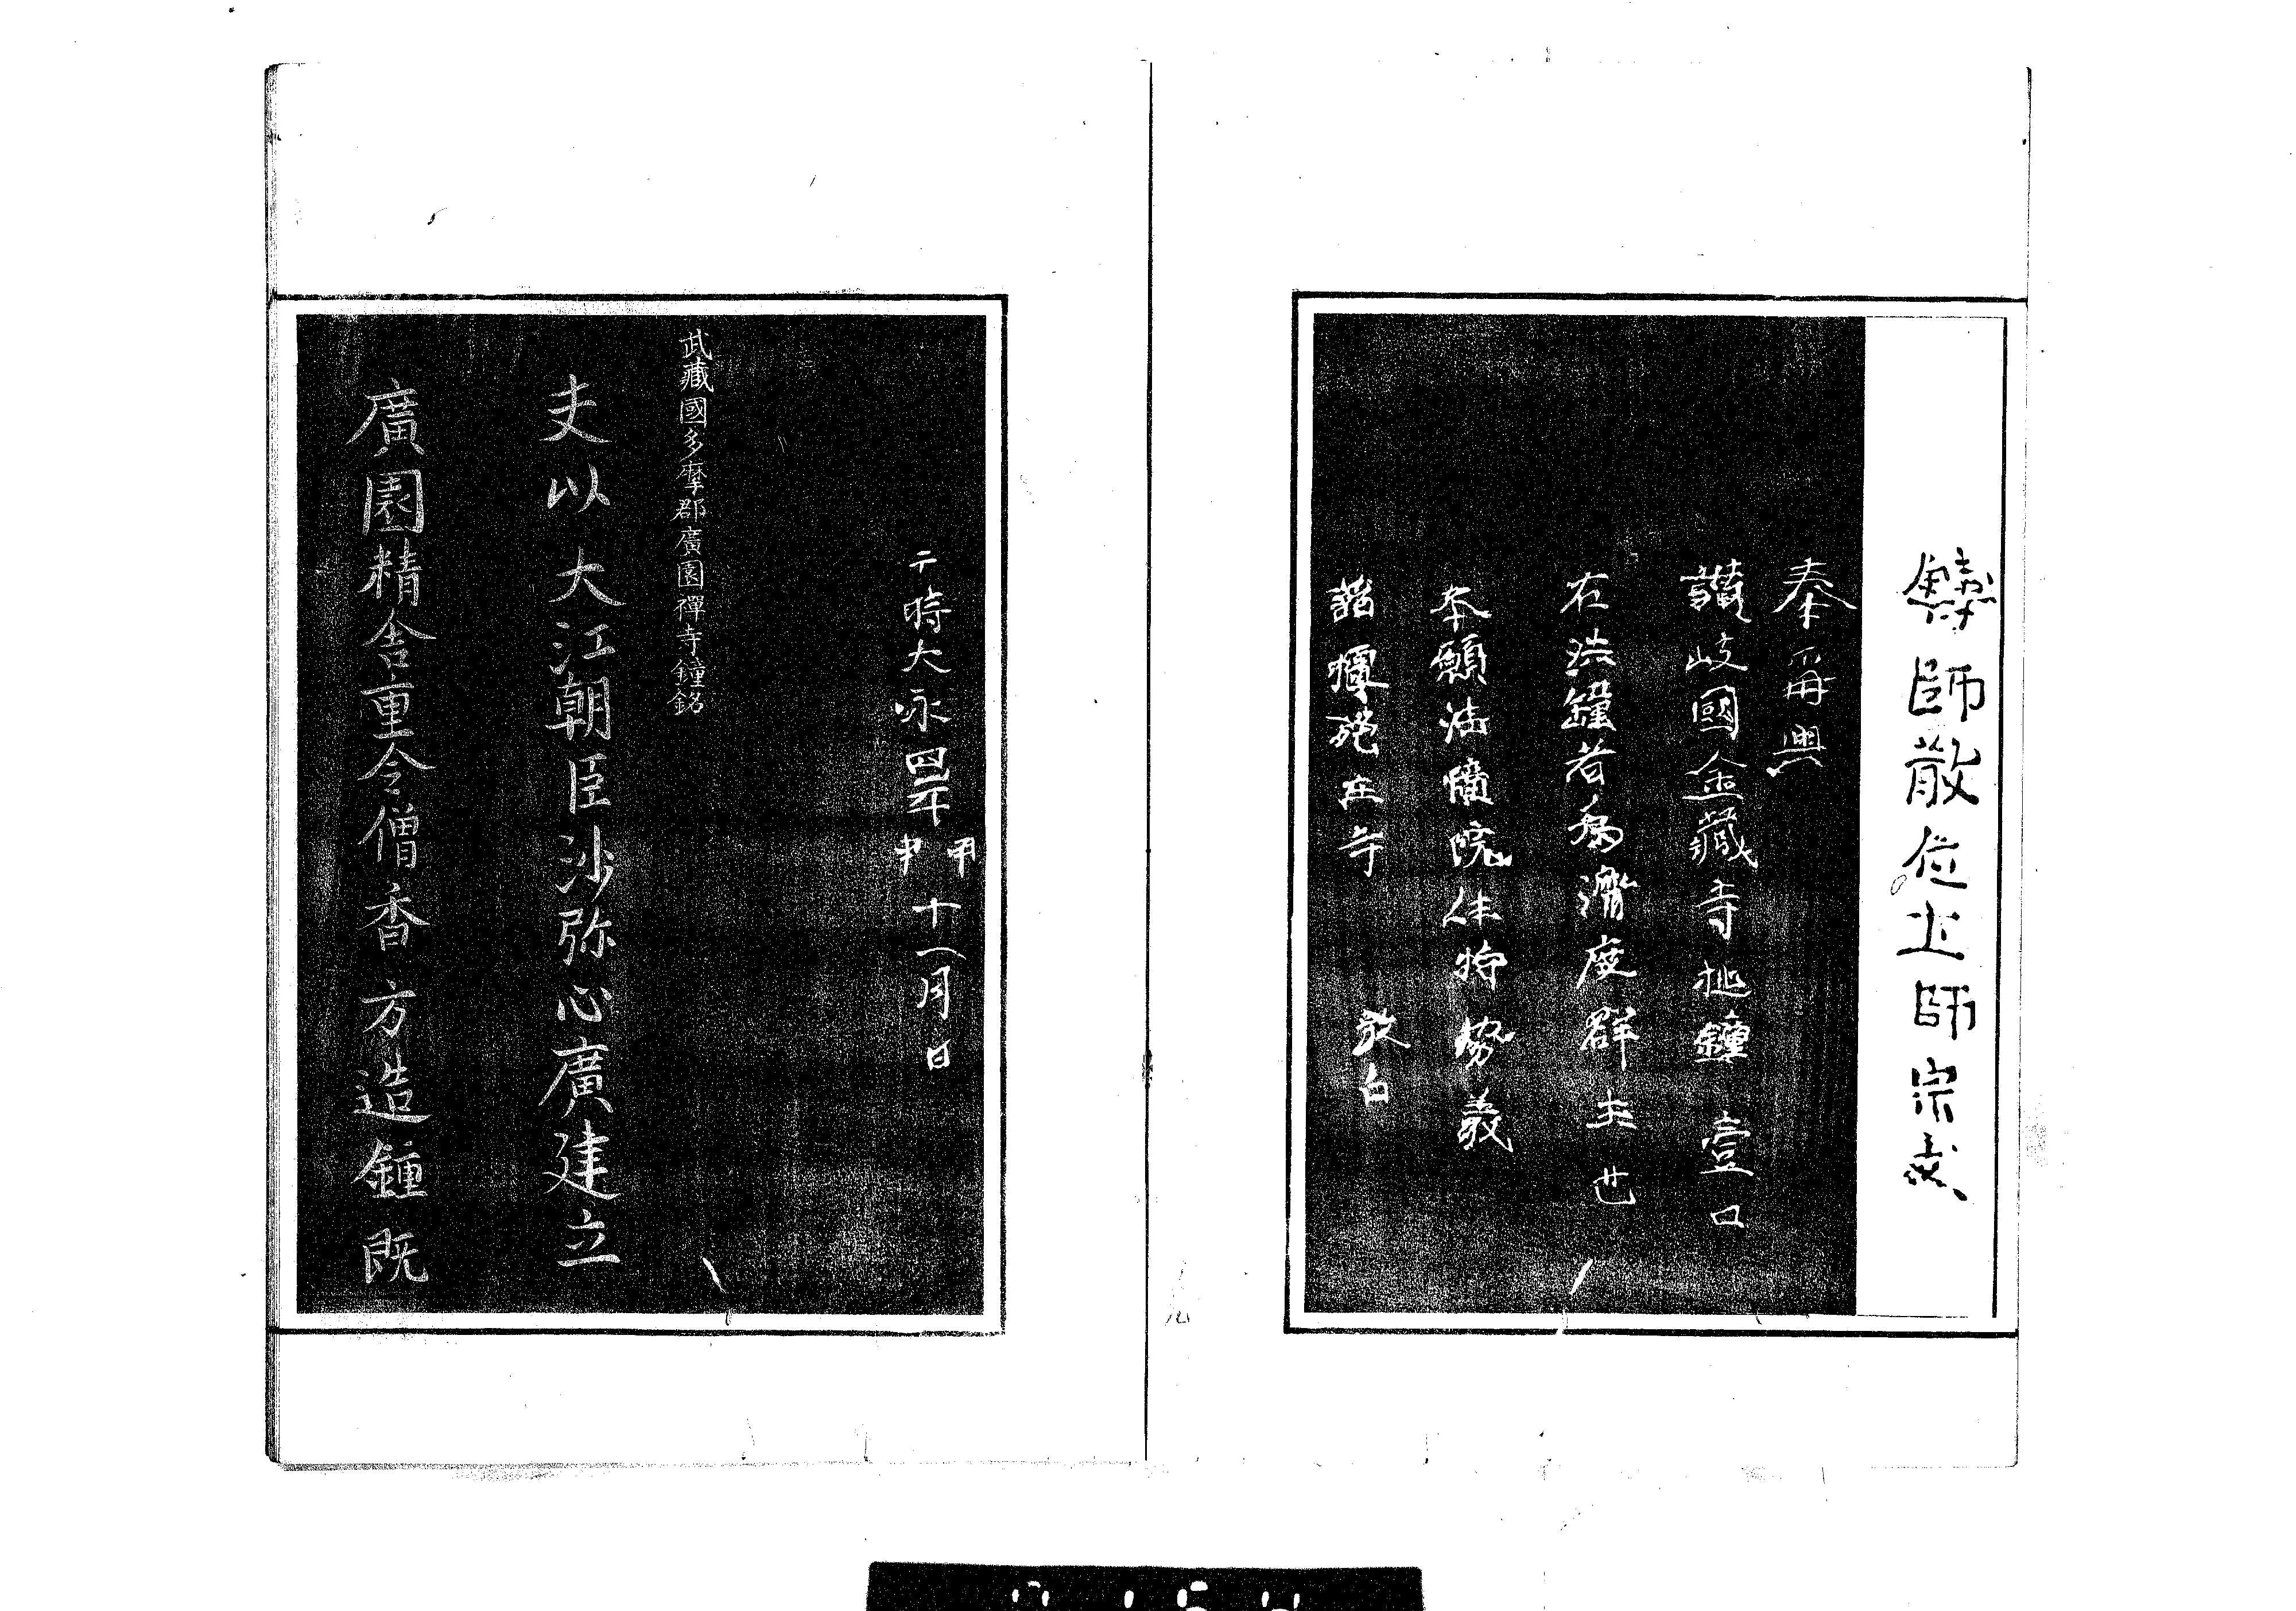 鑄師散位土師宗貞
奉再興
讃岐國金藏寺推鐘 壹口
右洪鐘者為濟度群生也
本願法憧院住持 義
諸檀 在寺 敬白
于時大永四年甲申十一月日
武藏國多摩郡廣園禪寺鐘銘
夫以大江朝臣沙弥心廣建立
廣園精舎重令僧香方造鐘既